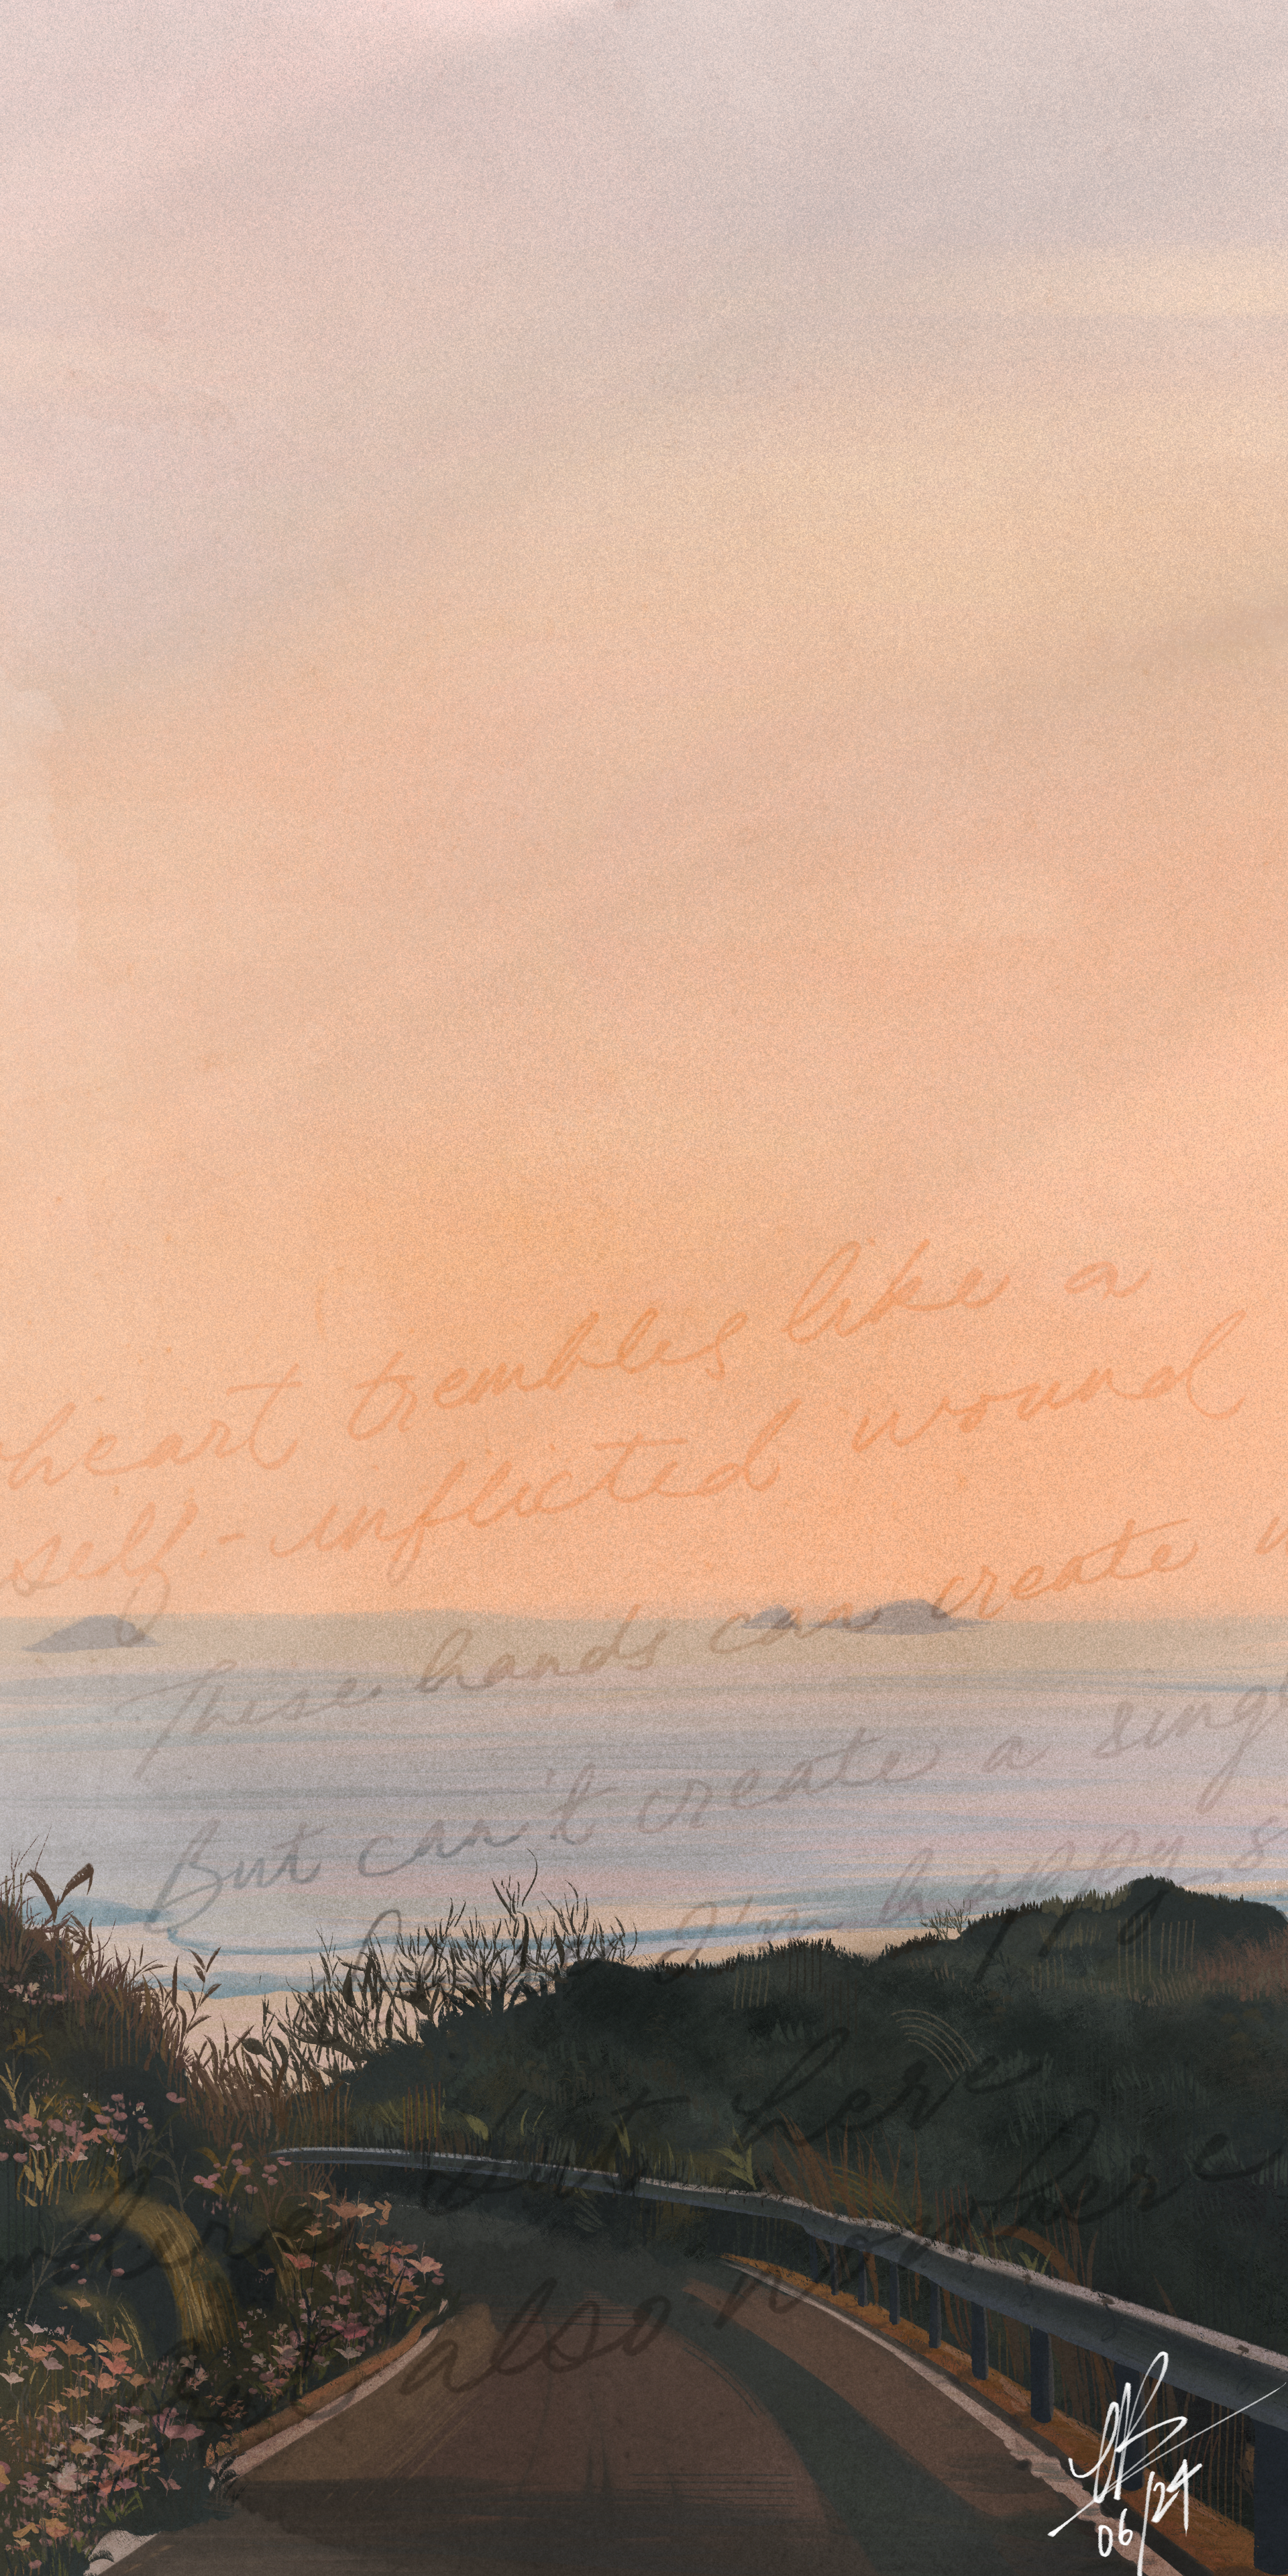 heart trembles like a
self-inflicted wound
These hands can create
But can't create a
I'm happy
but here
where
But also nowhere
06/24